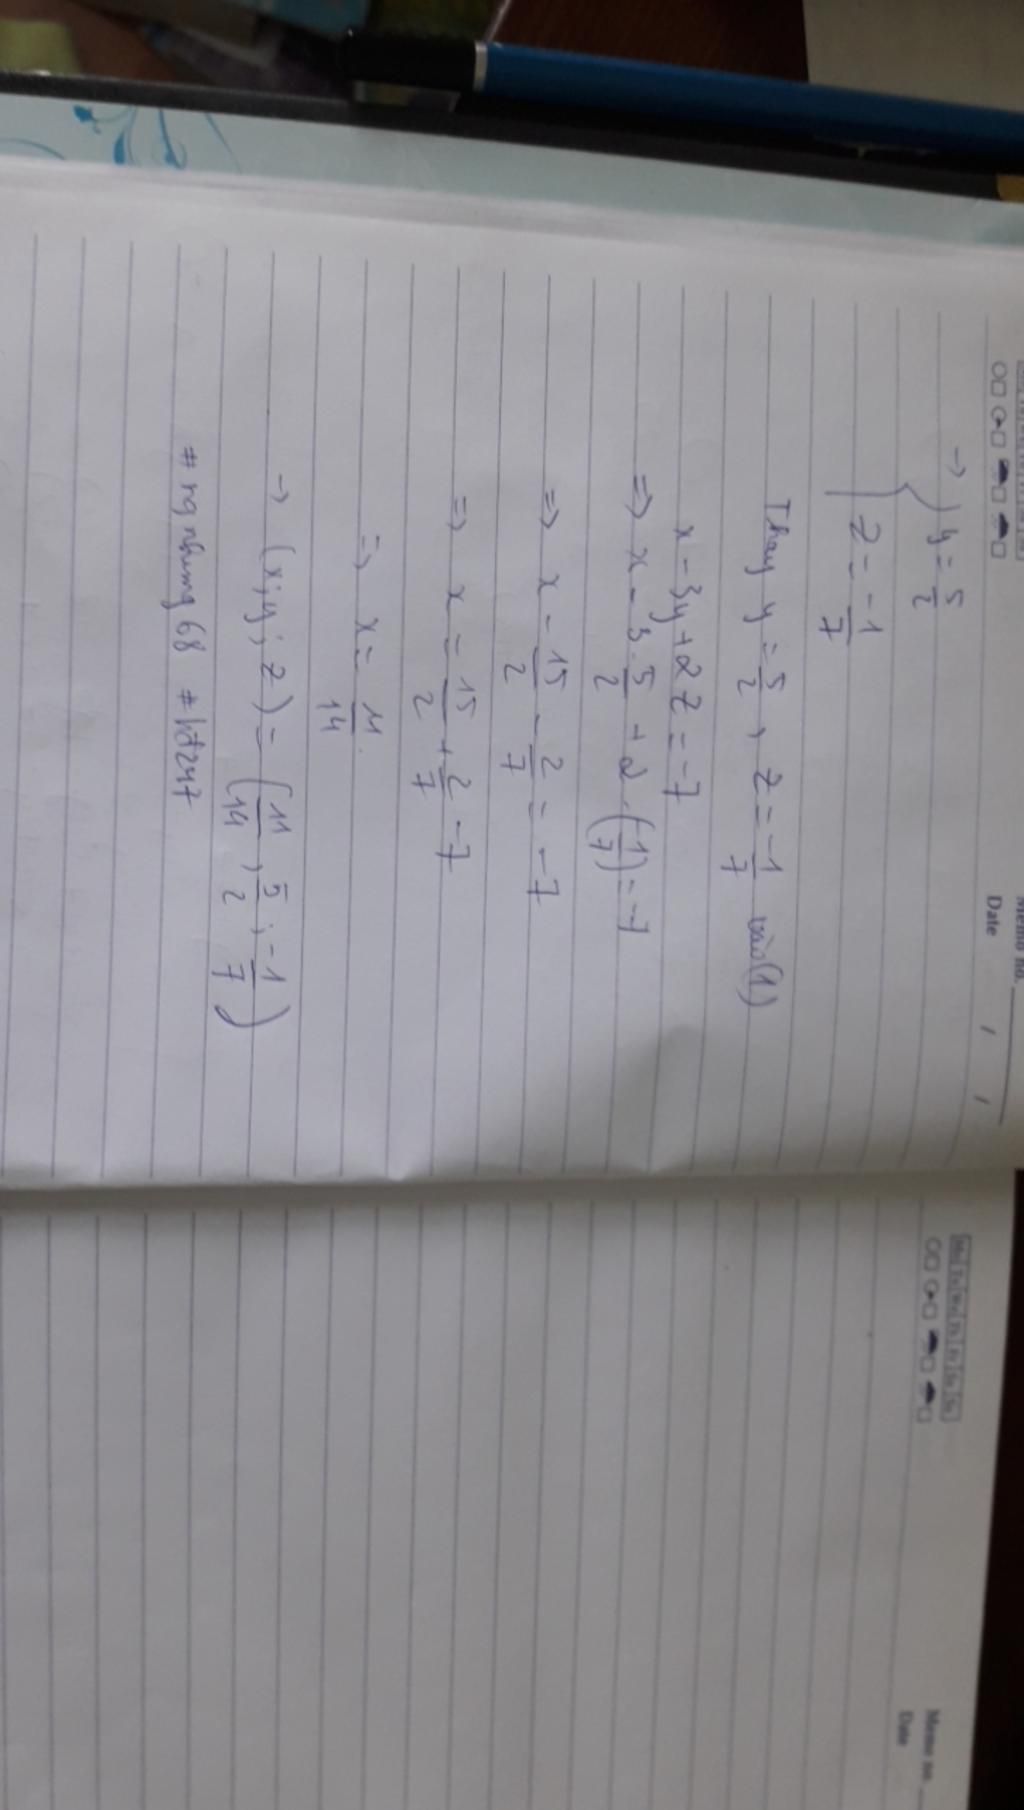 Memo no.
Date / /
→ { y = 5/2
z = -1/7
Thay y = 5/2, z = -1/7 vào (1)
x - 3y + 2z = -7
=> x - 3. 5/2 + 2. (-1/7) = -7
=> x - 15/2 - 2/7 = -7
=> x = 15/2 + 2/7 - 7
=> x = 11/14
→ (x; y; z) = (11/14; 5/2; -1/7)
Memo no.
Date